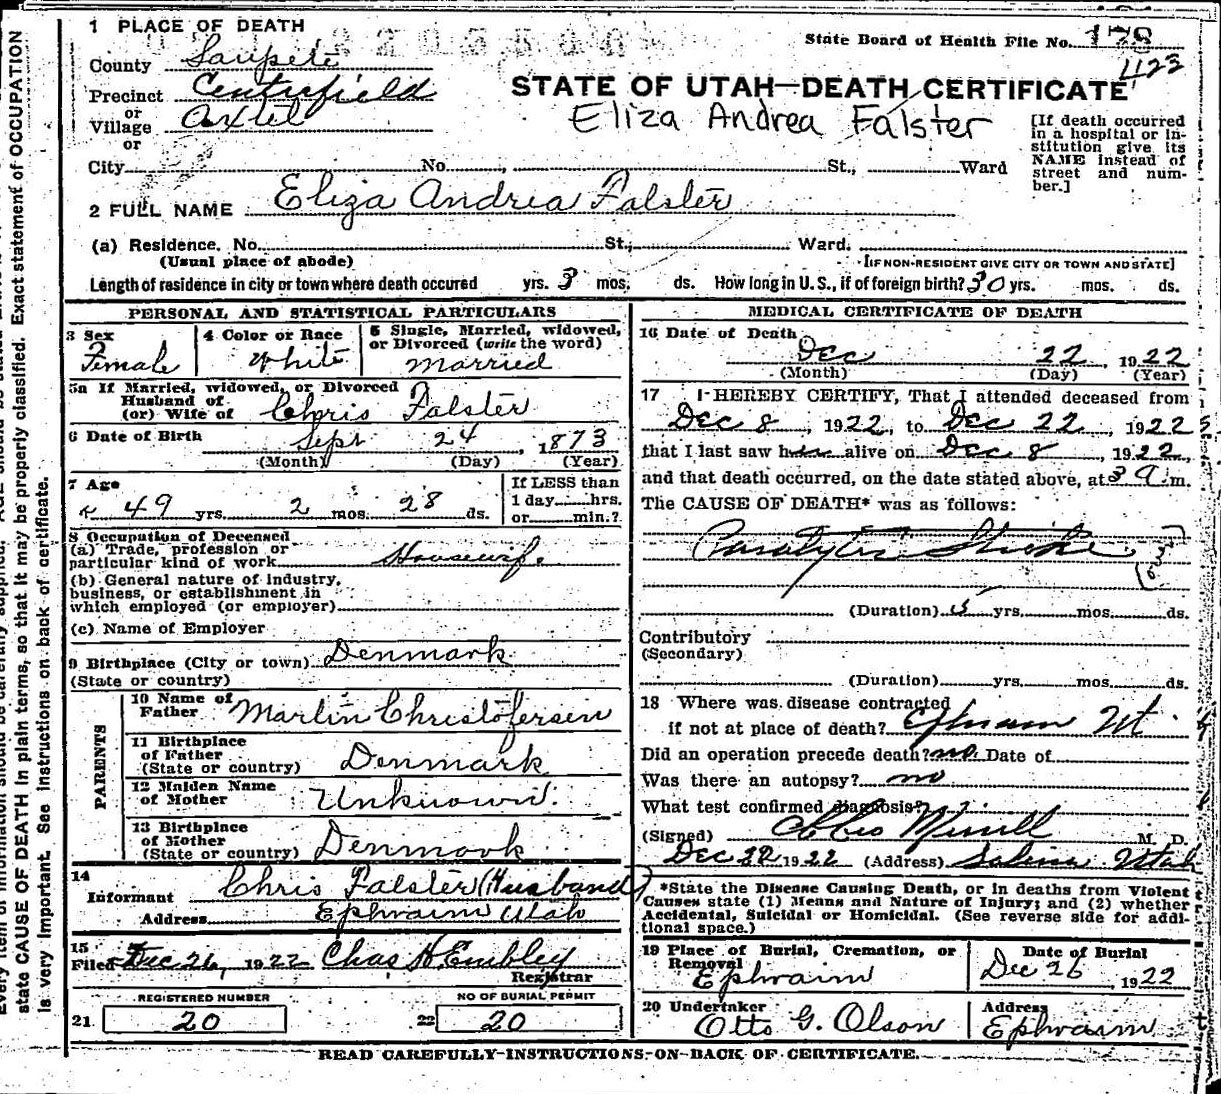 1 PLACE OF DEATH
State Board of Health File No. 178
1123
County Sanpete
STATE OF UTAH—DEATH CERTIFICATE
Precinct Centerfield
or
Village Axtel
or
Eliza Andrea Falster
[If death occurred
in a hospital or in-
stitution give its
NAME instead of
street and num-
ber.]
City No. St., Ward
2 FULL NAME Eliza Andrea Falster
(a) Residence. No. St., Ward.
(Usual place of abode) [IF NON-RESIDENT GIVE CITY OR TOWN AND STATE]
Length of residence in city or town where death occured yrs. 3 mos. ds. How long in U. S., if of foreign birth? 30 yrs. mos. ds.
PERSONAL AND STATISTICAL PARTICULARS
3 Sex
Female
4 Color or Race
White
5 Single, Married, widowed,
or Divorced (write the word)
Married
5a If Married, widowed, or Divorced
Husband of
(or) Wife of Chris Falster
6 Date of Birth Sept 24, 1873
(Month) (Day) (Year)
7 Age
49 yrs. 2 mos. 28 ds.
If LESS than
1 day hrs.
or min.?
8 Occupation of Deceased
(a) Trade, profession or
particular kind of work Housewife.
(b) General nature of industry,
business, or establishment in
which employed (or employer)
(c) Name of Employer
9 Birthplace (City or town) Denmark
(State or country)
PARENTS
10 Name of
Father Martin Christofersen
11 Birthplace
of Father
(State or country) Denmark
12 Maiden Name
of Mother Unknown.
13 Birthplace
of Mother
(State or country) Denmark
14
Informant Chris Falster (Husband)
Address Ephraim Utah
15
Filed Dec 26, 1922 Chas H Embley
Registrar
REGISTERED NUMBER
21. 20
NO OF BURIAL PERMIT
22 20
MEDICAL CERTIFICATE OF DEATH
16 Date of Death
Dec 22, 1922
(Month) (Day) (Year)
17 I HEREBY CERTIFY, That I attended deceased from
Dec 8, 1922, to Dec 22, 1922
that I last saw her alive on Dec 8, 1922,
and that death occurred, on the date stated above, at 3 a. m.
The CAUSE OF DEATH* was as follows:
Paralytic Stroke
(Duration) 5 yrs. mos. ds.
Contributory
(Secondary)
(Duration) yrs. mos. ds.
18 Where was disease contracted
if not at place of death? Ephraim Ut.
Did an operation precede death? no Date of
Was there an autopsy? no
What test confirmed diagnosis?
(Signed) Merrill M. D.
Dec 22 1922 (Address) Salina Utah
*State the Disease Causing Death, or in deaths from Violent
Causes state (1) Means and Nature of Injury; and (2) whether
Accidental, Suicidal or Homicidal. (See reverse side for addi-
tional space.)
19 Place of Burial, Cremation, or
Removal
Ephraim
Date of Burial
Dec 26, 1922
20 Undertaker
Otto G. Olson
Address
Ephraim
READ CAREFULLY INSTRUCTIONS ON BACK OF CERTIFICATE.
state CAUSE OF DEATH in plain terms, so that it may be properly classified. Exact statement of OCCUPATION
is very important. See instructions on back of certificate.